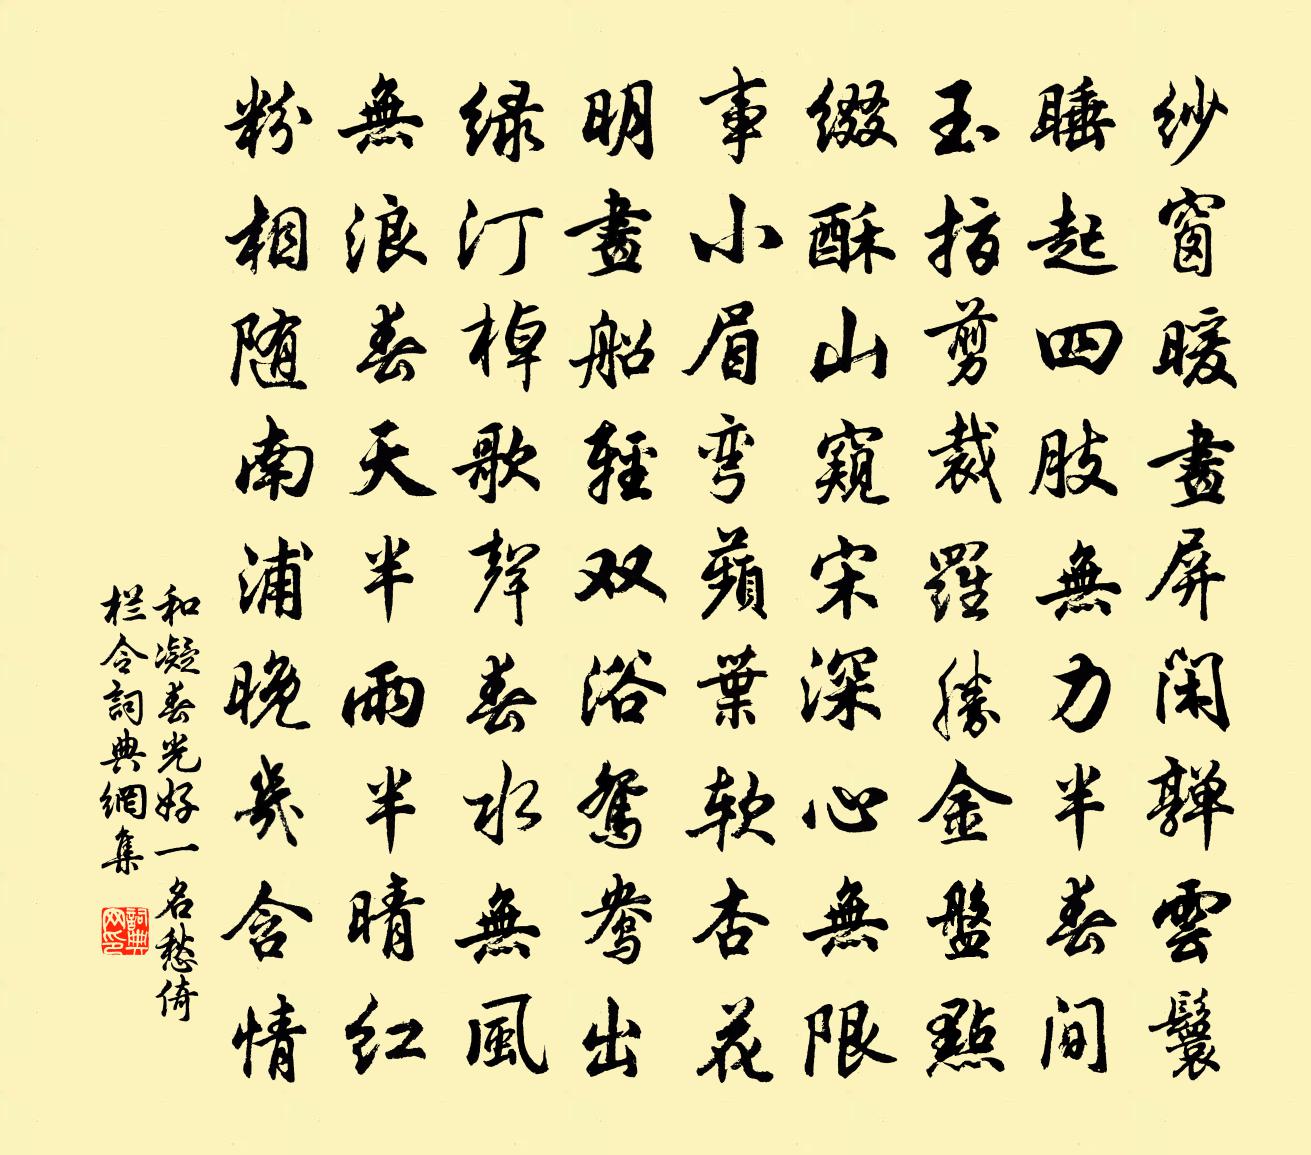 紗窗暖畫屏閑嚲雲鬟
睡起四肢無力半春間
玉指剪裁羅勝金盤點
綴酥山窺宋深心無限
事小眉彎蘋葉軟杏花
明畫船輕双浴鴛鴦出
緑汀棹歌聲春水無風
無浪春天半雨半晴紅
粉相随南浦晚幾含情
和凝春光好一名愁倚
栏令詞典網集
詞典
网印